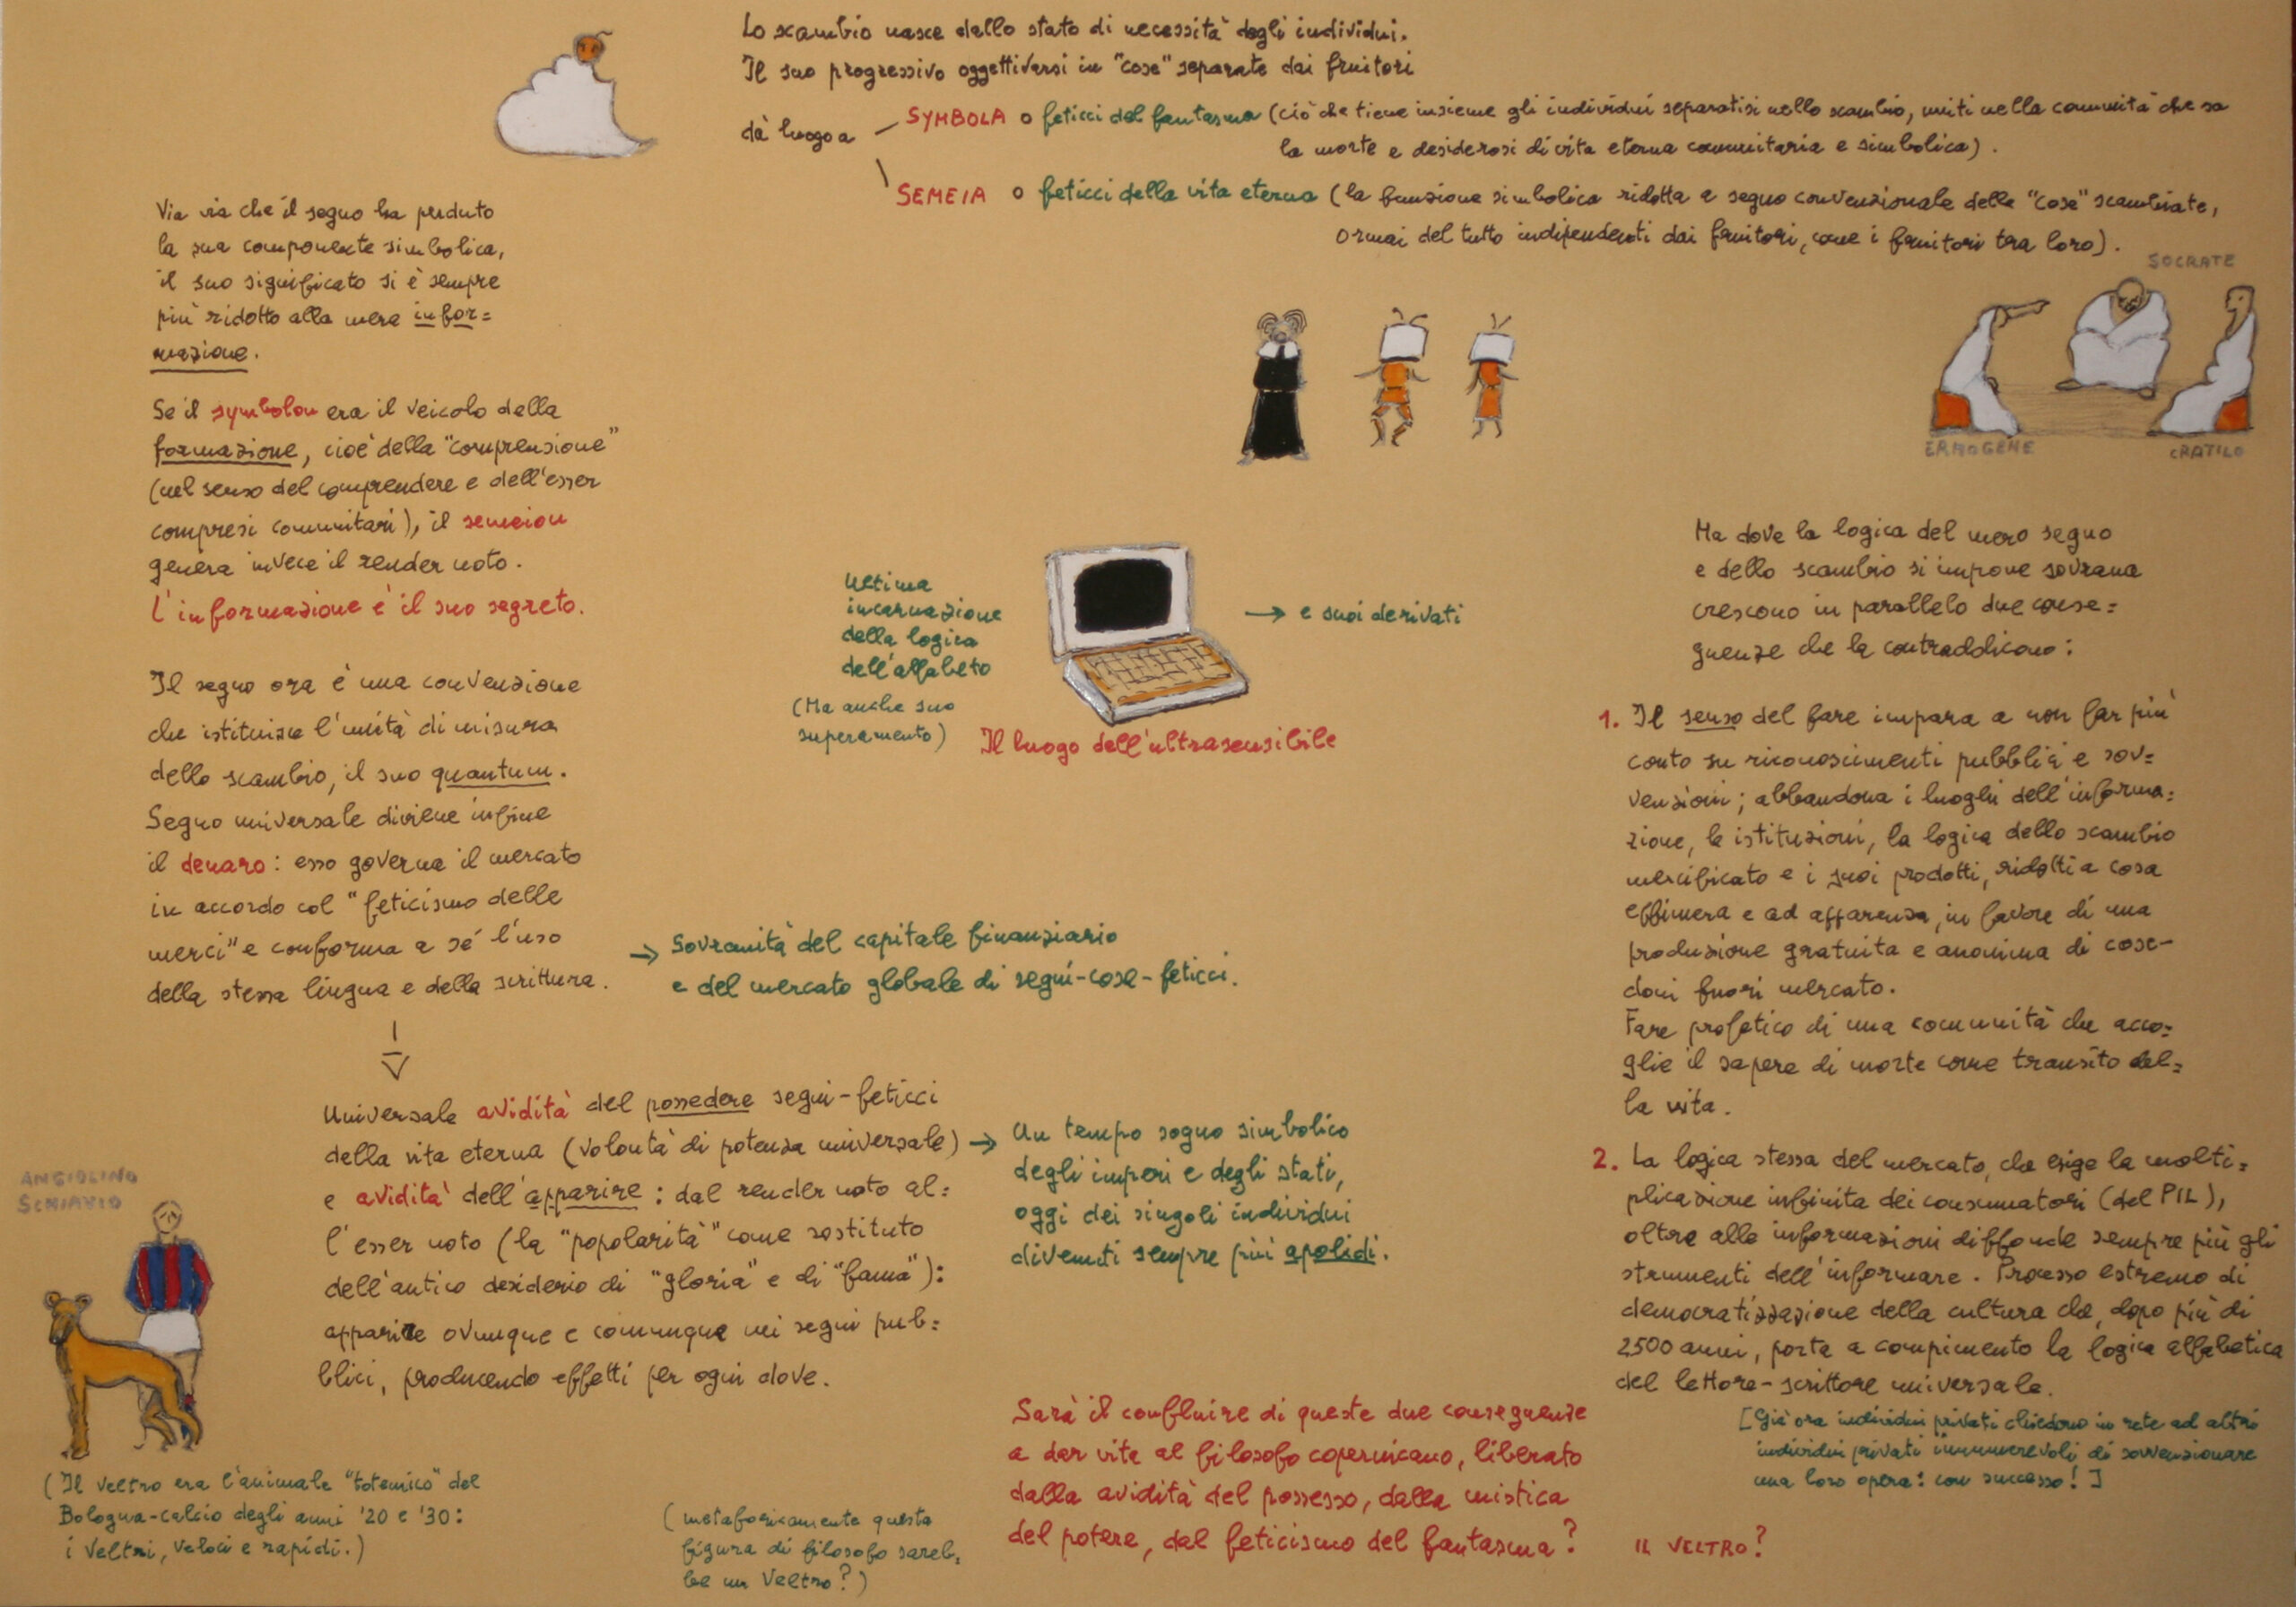 Lo scambio nasce dallo stato di necessità degli individui.
Il suo progressivo oggettivarsi in "cose" separate dai fruitori
dà luogo a
SYMBOLA o feticci del fantasma (ciò che tiene insieme gli individui separatisi nello scambio, uniti nella comunità che sa
la morte e desiderosi di vita eterna comunitaria e simbolica).
SEMEIA o feticci della vita eterna (la funzione simbolica ridotta a segno convenzionale delle "cose" scambiate,
ormai del tutto indipendenti dai fruitori, come i fruitori tra loro).
Via via che il segno ha perduto
la sua componente simbolica,
il suo significato si è sempre
più ridotto alla mera infor=
mazione.
Se il symbolon era il veicolo della
formazione, cioè della "comprensione"
(nel senso del comprendere e dell'esser
compresi comunitari), il semeion
genera invece il render noto.
L'informazione è il suo segreto.
Il segno ora è una convenzione
che istituisce l'unità di misura
dello scambio, il suo quantum.
Segno universale diviene infine
il denaro: esso governa il mercato
in accordo col "feticismo delle
merci" e conforma a sé l'uso
della stessa lingua e della scrittura.
→ Sovranità del capitale finanziario
e del mercato globale di segni-cose-feticci.
Universale avidità del possedere segni-feticci
della vita eterna (volontà di potenza universale) →
e avidità dell'apparire: dal render noto al=
l'esser noto (la "popolarità" come sostituto
dell'antico desiderio di "gloria" e di "fama"):
apparire ovunque e comunque nei segni pub=
blici, producendo effetti per ogni dove.
Un tempo sogno simbolico
degli imperi e degli stati,
oggi dei singoli individui
divenuti sempre più apolidi.
ANGIOLINO
SCHIAVIO
(Il veltro era l'animale "totemico" del
Bologna-calcio degli anni '20 e '30:
i Veltri, veloci e rapidi.)
Ultima
incarnazione
della logica
dell'alfabeto
(Ma anche suo
superamento)
→ e suoi derivati
Il luogo dell'ultrasensibile
SOCRATE
ERMOGENE
CRATILO
Ma dove la logica del mero segno
e dello scambio si impone sovrana
crescono in parallelo due conse=
guenze che la contraddicono:
1. Il senso del fare impara a non far più
conto su riconoscimenti pubblici e sov=
venzioni; abbandona i luoghi dell'informa=
zione, le istituzioni, la logica dello scambio
mercificato e i suoi prodotti, ridotti a cosa
effimera e ad apparenza, in favore di una
produzione gratuita e anonima di cose-
doni fuori mercato.
Fare profetico di una comunità che acco=
glie il sapere di morte come transito del=
la vita.
2. La logica stessa del mercato, che esige la molti=
plicazione infinita dei consumatori (del PIL),
oltre alle informazioni diffonde sempre più gli
strumenti dell'informare. Processo estremo di
democratizzazione della cultura che, dopo più di
2500 anni, porta a compimento la logica alfabetica
del lettore-scrittore universale.
[Già ora individui privati chiedono in rete ad altri
individui privati innumerevoli di sovvenzionare
una loro opera: con successo!]
Sarà il confluire di queste due conseguenze
a dar vita al filosofo copernicano, liberato
dalla avidità del possesso, dalla mistica
del potere, dal feticismo del fantasma?
IL VELTRO?
(metaforicamente questa
figura di filosofo sareb=
be un Veltro?)